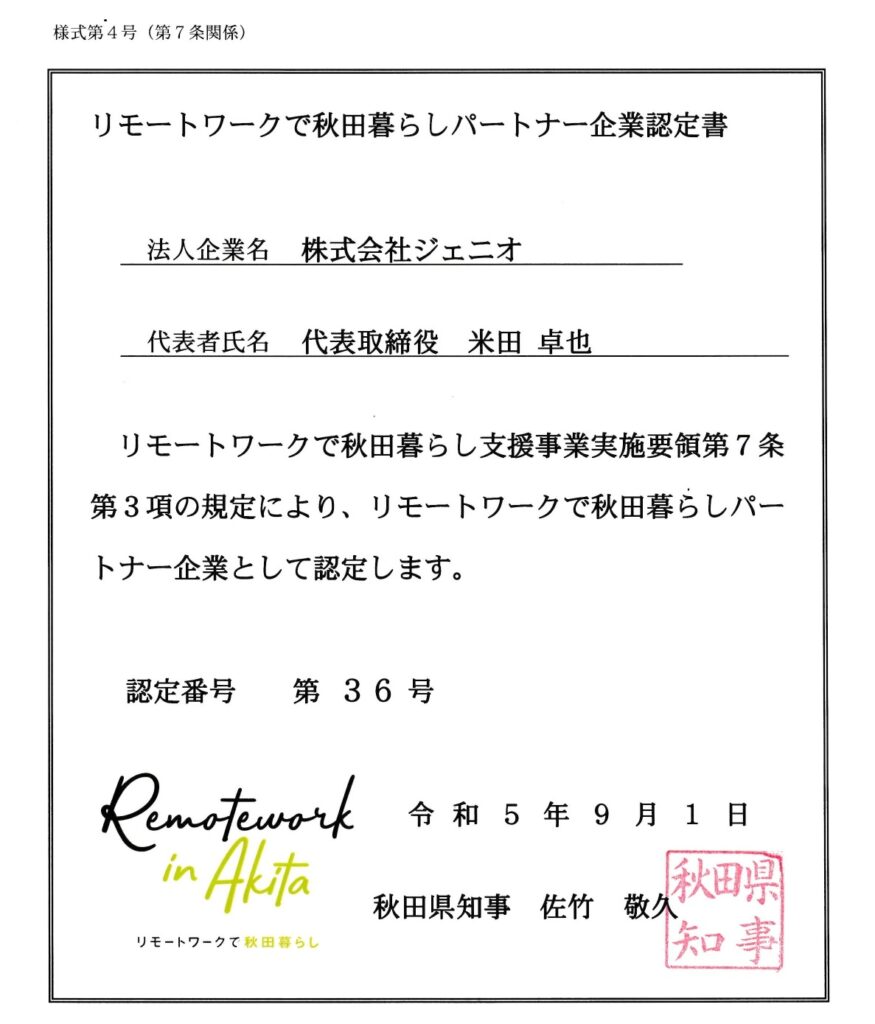 様式第４号（第７条関係）
リモートワークで秋田暮らしパートナー企業認定書
法人企業名　株式会社ジェニオ
代表者氏名　代表取締役　米田 卓也
リモートワークで秋田暮らし支援事業実施要領第７条
第３項の規定により、リモートワークで秋田暮らしパー
トナー企業として認定します。
認定番号　第 ３６ 号
Remotework
in Akita
リモートワークで秋田暮らし
令和５年９月１日
秋田県知事　佐竹　敬久
秋田県
知事